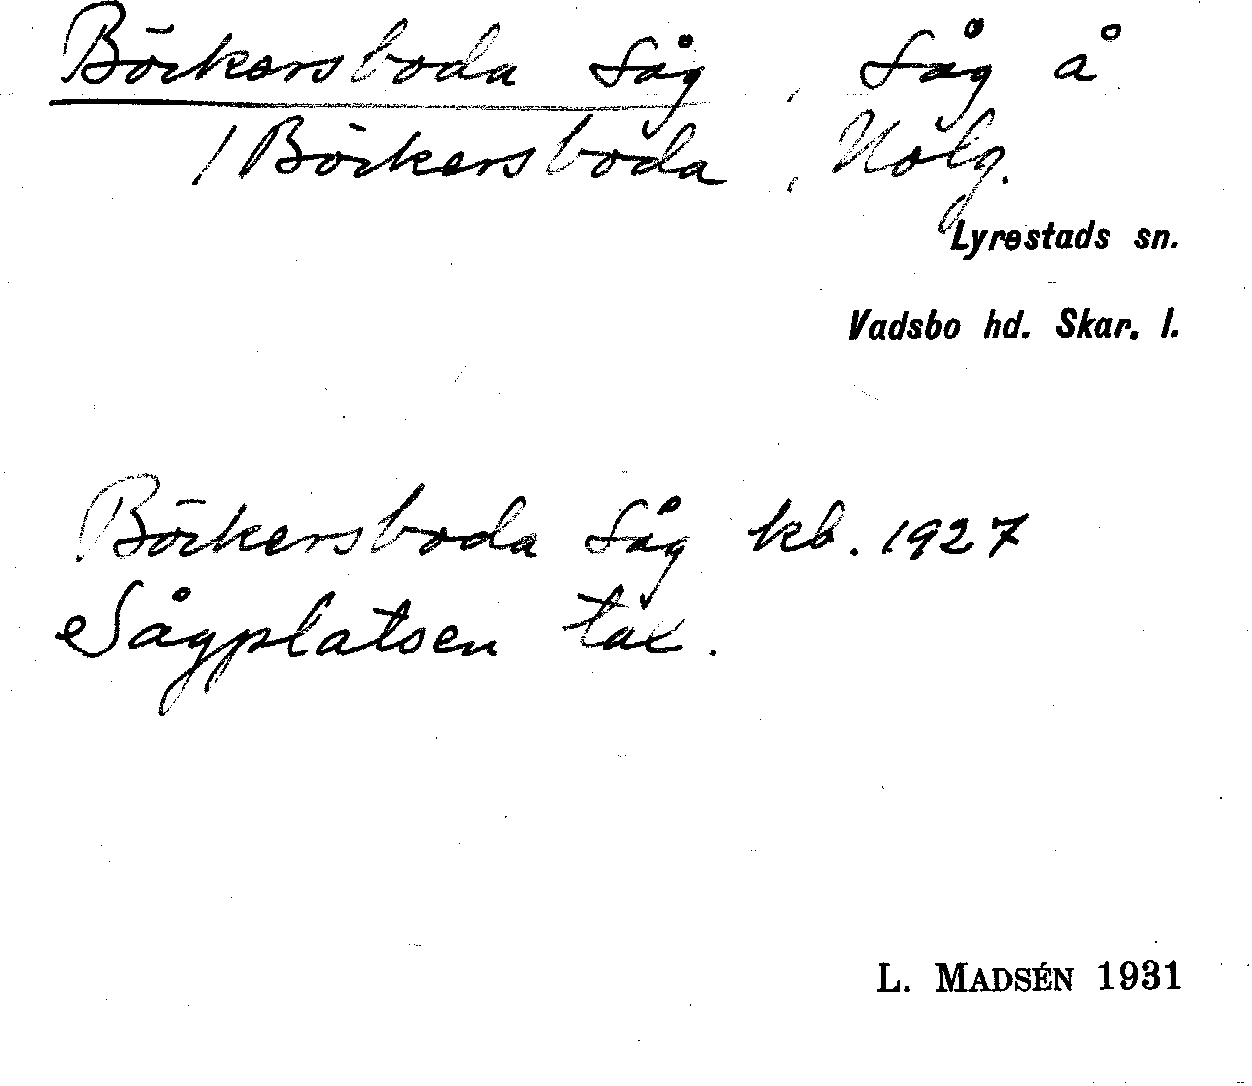 Börkersboda såg, Såg å
/Börkersboda, Nolg.
Lyrestads sn.
Vadsbo hd. Skar. l.
Börkersboda såg kb. 1927
Sågplatsen tal.
L. MADSÉN 1931